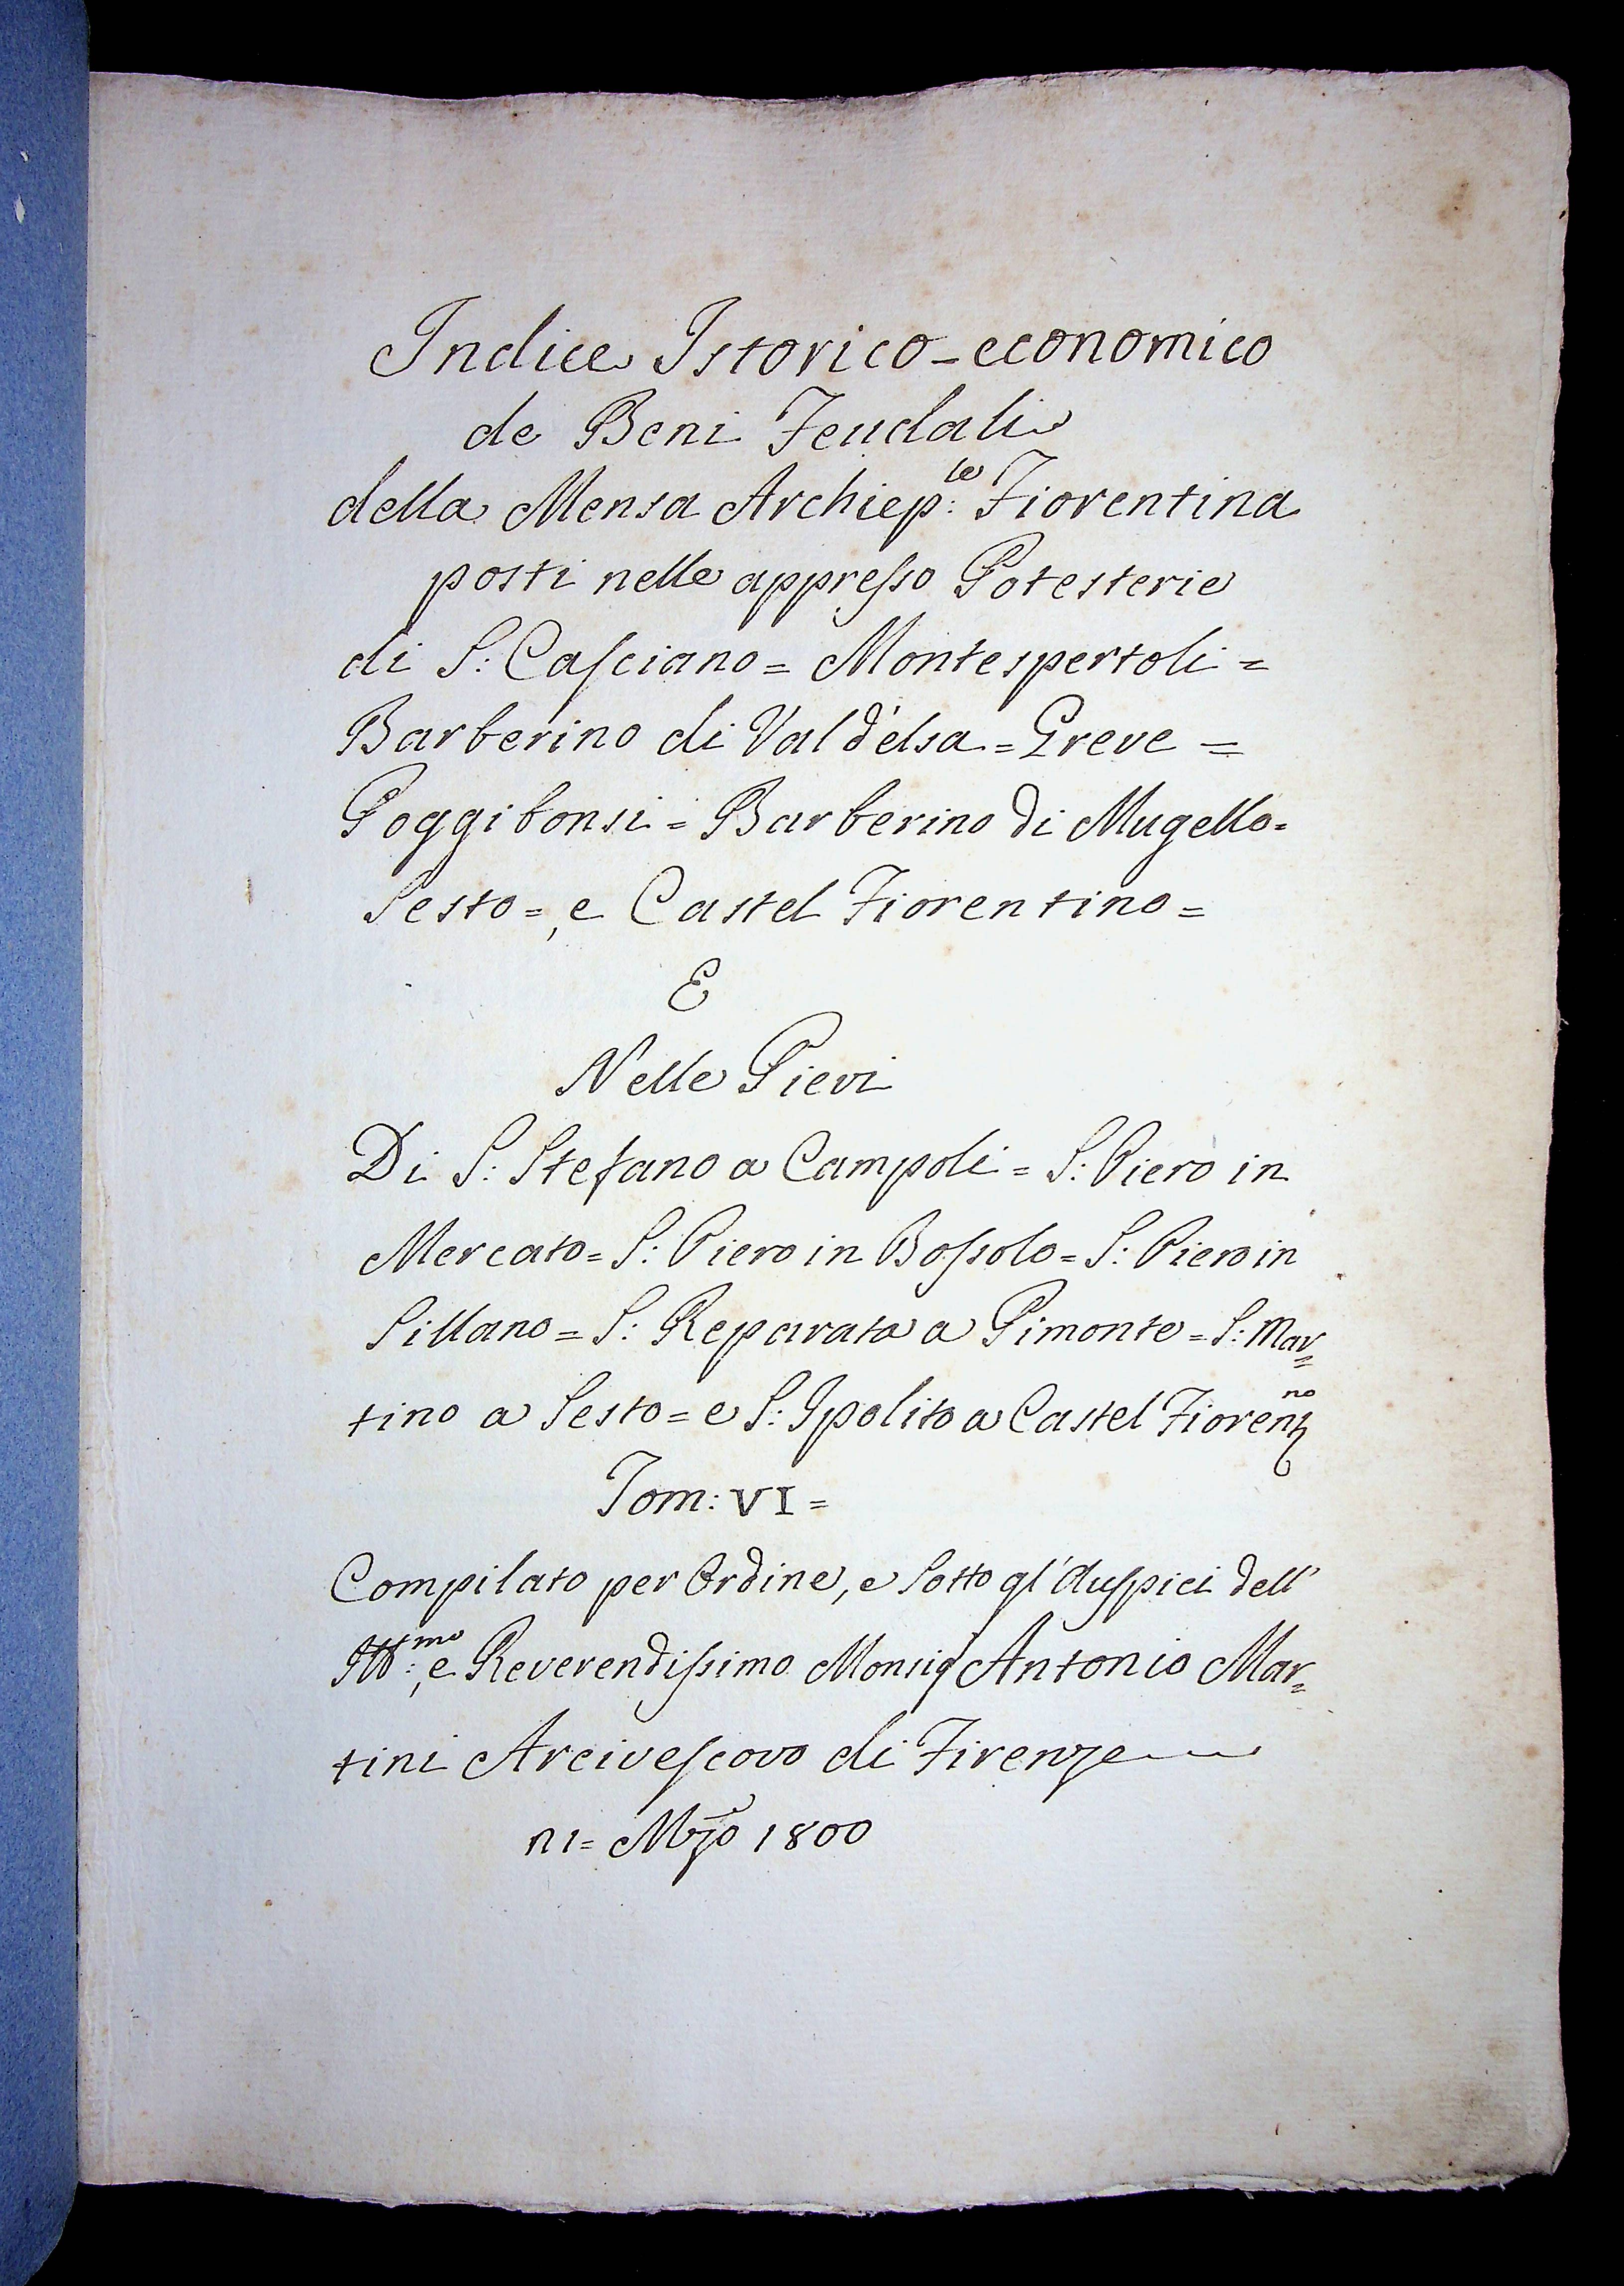 Indice Istorico-economico
de Beni Feudali
della Mensa Archiep:le Fiorentina
posti nelle appresso Potesterie
di S: Casciano = Montespertoli =
Barberino di Vald'elsa = Greve =
Poggibonsi = Barberino di Mugello =
Sesto =, e Castel Fiorentino =
E
Nelle Pievi
Di S: Stefano a Campoli = S: Piero in
Mercato = S: Piero in Bossolo = S: Piero in
Sillano = S: Reparata a Pimonte = S: Mar=
tino a Sesto = e S: Ipolito a Castel Fiorent.no
Tom: VI =
Compilato per Ordine, e Sotto gl'Auspici dell'
Ill:mo, e Reverendissimo Monsig Antonio Mar=
tini Arcivescovo di Firenze
1800